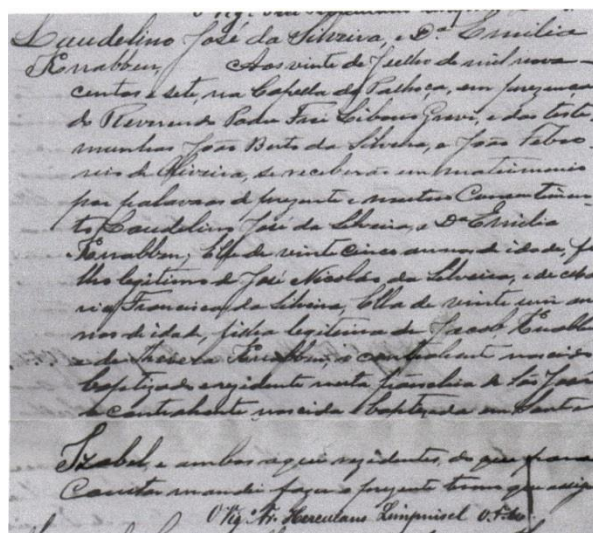 O Vig. Frei Herculano
Laudelino José da Silveira, e Dª Emilia
Knabben, Aos vinte de Julho de mil nove-
centos e sete, na Capella da Palhoça, em prezença
do Reverendo Padre Frei e das teste-
munhas João Berto da Silveira, e João
de Oliveira, se receberão em matrimonio
por palavras de prezente e mutuo Consentimen-
to, Laudelino José da Silveira, e Dª Emilia
Knabben; Elle de vinte cinco annos de idade, fi-
lho legitimo de José Nicolão da Silveira, e de Ma-
ria Francisca da Silveira, Ella de vinte um an-
nos de idade, filha legitima de Jacob Knabben
e de Knabben, o contrahente nascido
baptizado e rezidente nesta freguezia de São José
a contrahente, nascida e baptizada em Santa
Izabel, e ambos aqui rezidentes, do que para
Constar mandei fazer o prezente termo que assig
O Vig. Fr. Herculano Limpinsel O.F.M.